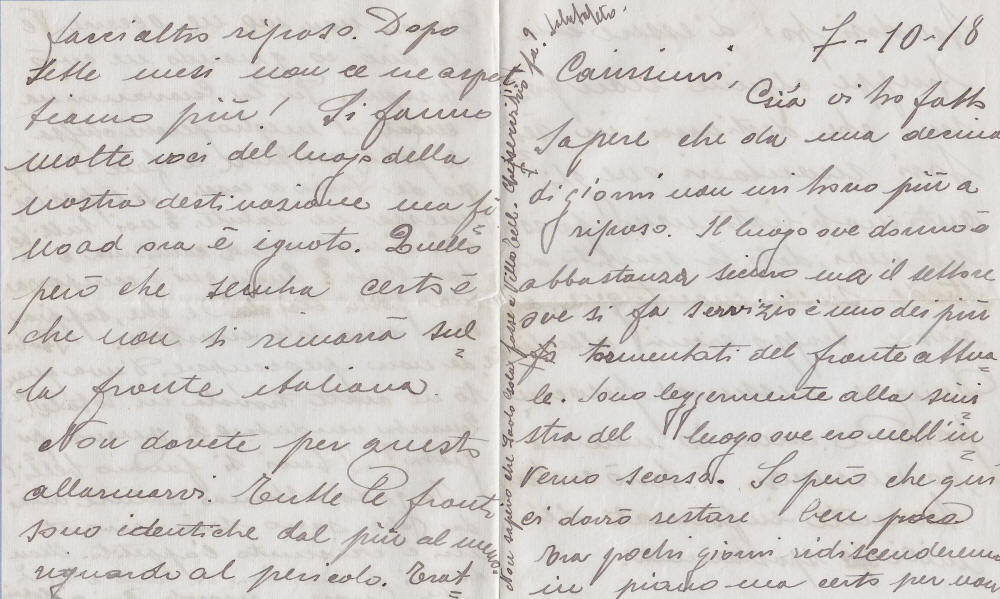 7-10-18
Carissimi,
Già vi ho fatto
sapere che da una decina
di giorni non mi trovo più a
riposo. Il luogo ove dormo è
abbastanza sicuro ma il settore
ove si fa servizio è uno dei più
tormentati del fronte attua
le. Sono leggermente alla sini
stra del luogo ove ero nell'in
verno scorso. So però che qui
ci dovrò restare ben poco
Tra pochi giorni ridiscenderemo
in piano ma certo per non
farci altro riposo. Dopo
sette mesi non ce ne aspet
tiamo più! Si fanno
molte voci del luogo della
nostra destinazione ma fi
no ad ora è ignoto. Quello
però che sembra certo è
che non si rimarrà sul
la fronte italiana.
Non dovete per questo
allarmarvi. Tutte le fronti
sono identiche dal più al meno
riguardo al pericolo. Trat
Non sapevo che Paolo Isola fosse a Villa